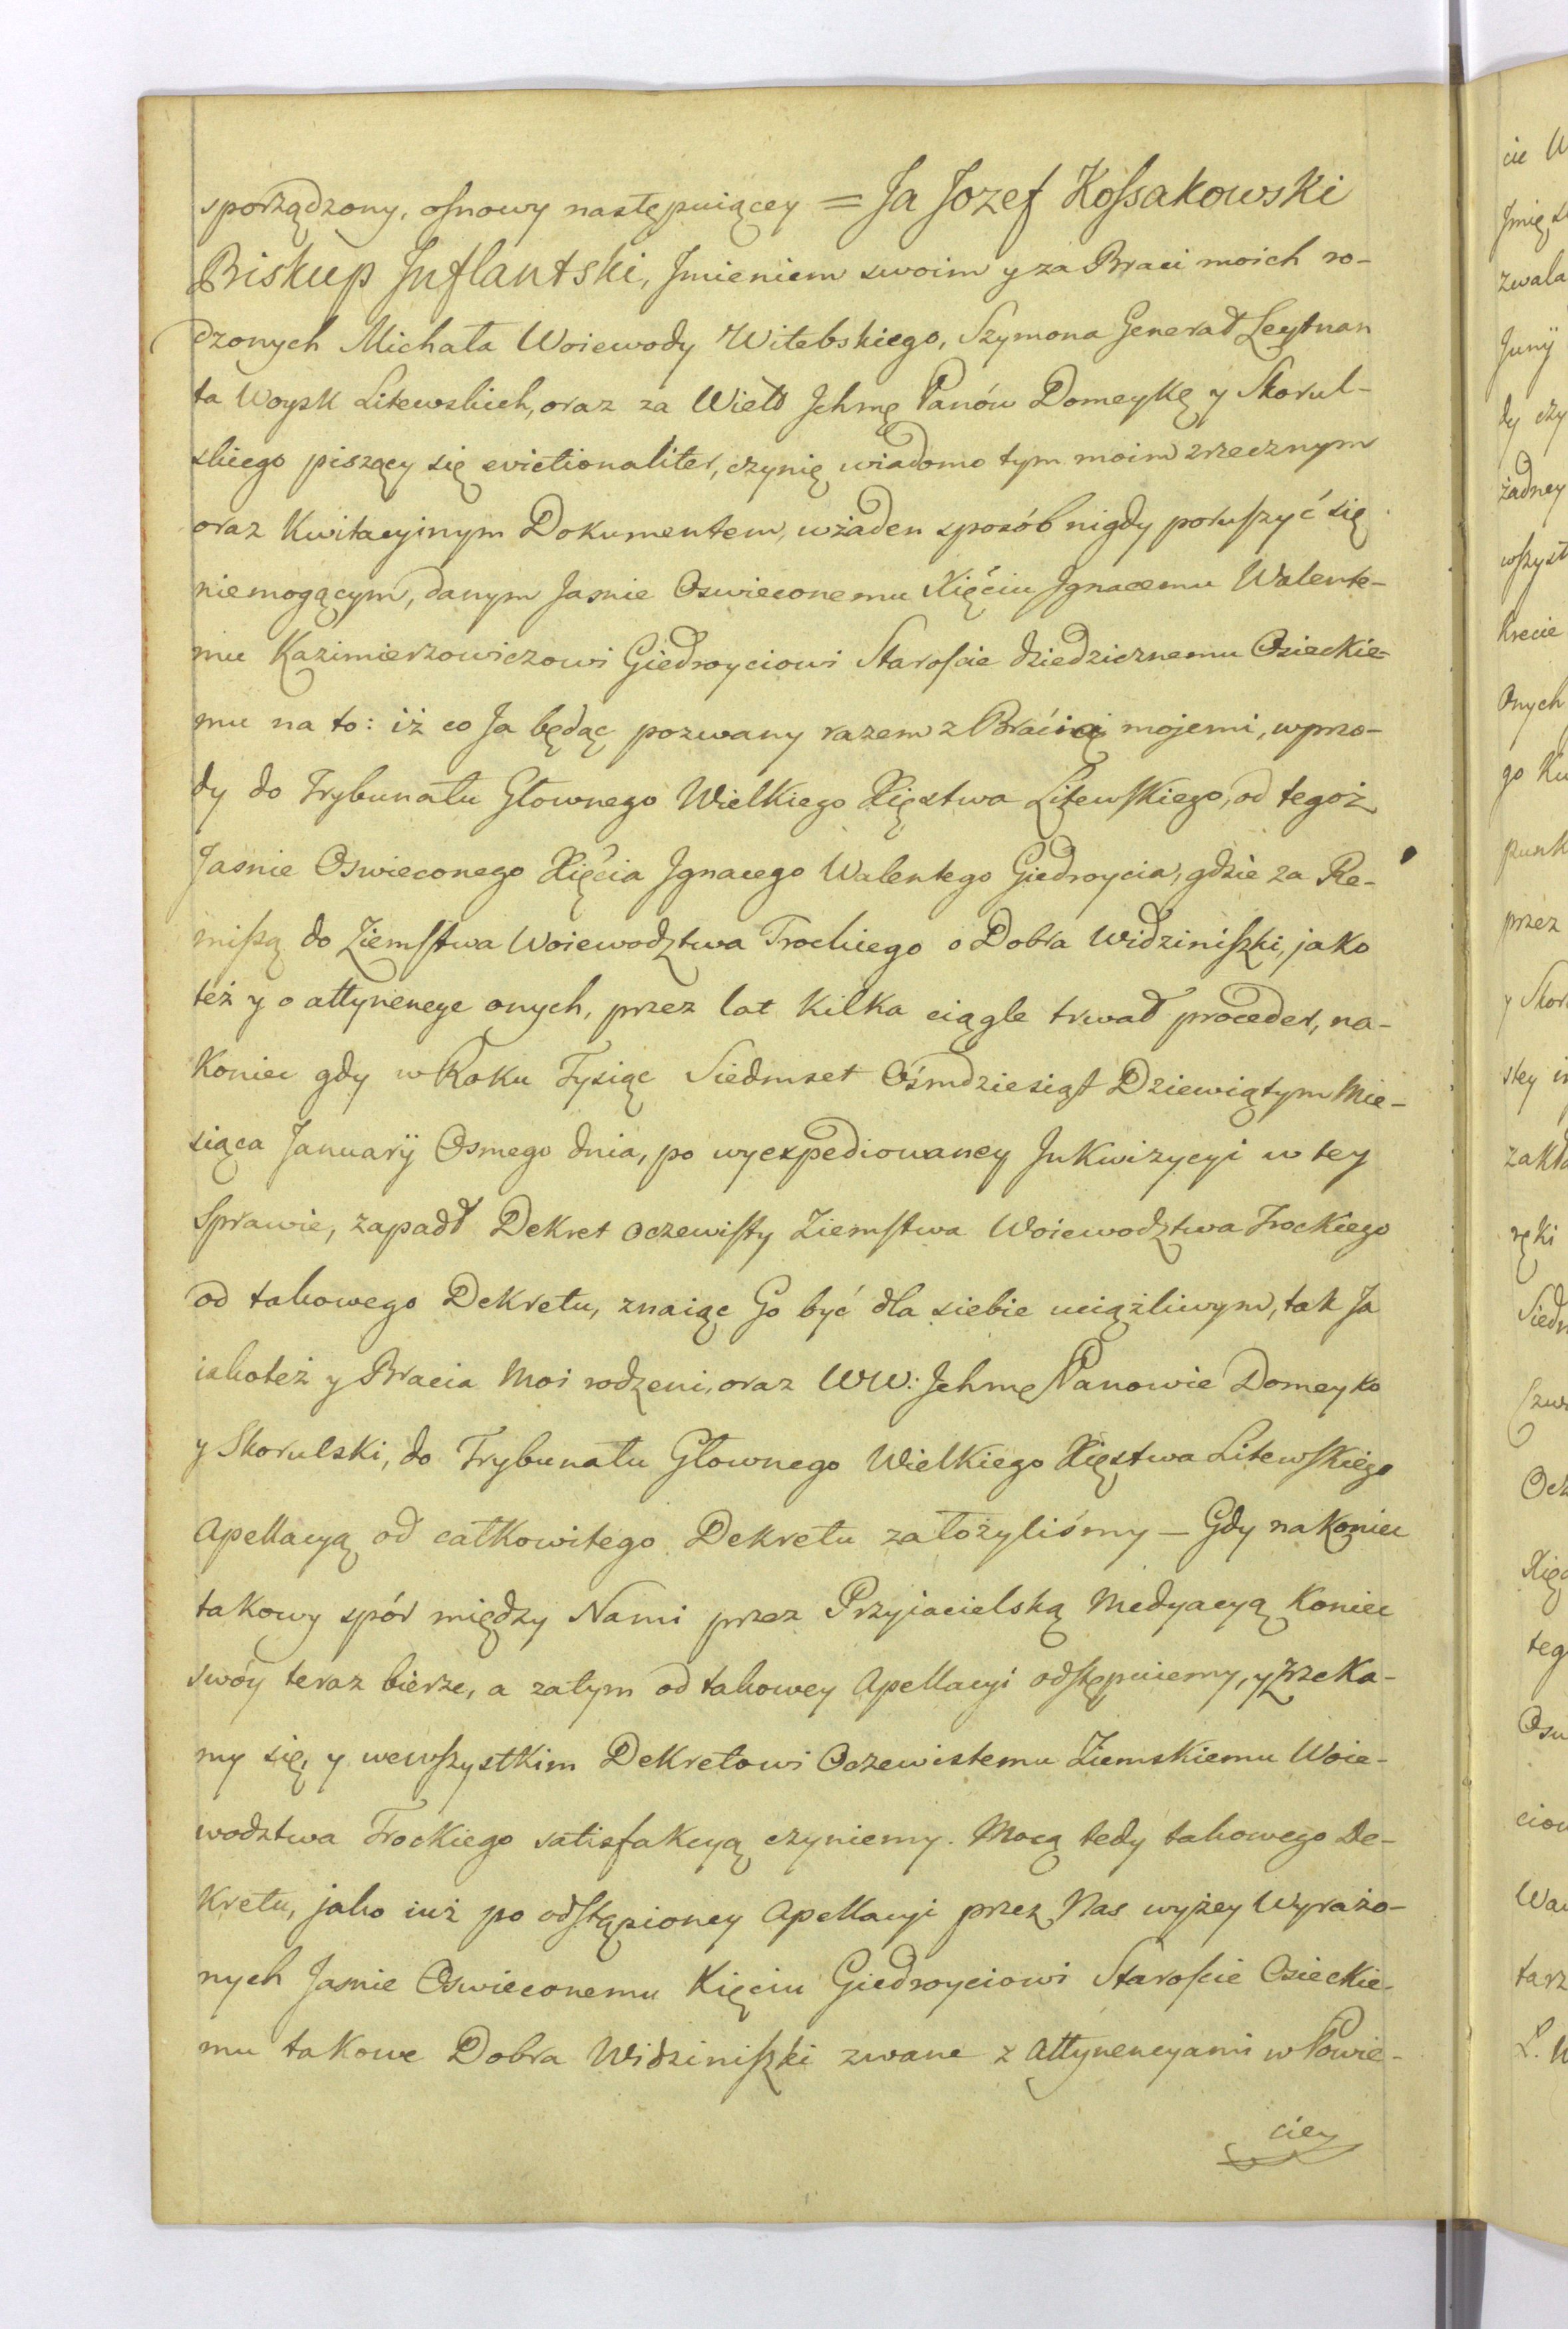 sporządzony, osnowy następuiącey = Ja Jozef Kossakowski
Biskup Inflantski, Imieniem swoim y za Braci moich ro-
dzonych Michała Woiewody Witebskiego, Szymona Generał Leytnan
ta Woysk Litewskich, oraz za Wielb Jchmę Panów Domeykę y Skorul-
skiego piszący się evictionaliter, czynię wiadomo tym moim zrzecznym
oraz Kwitacyinym Dokumentem, wżaden sposób nigdy poruszyć się
niemogącym, danym Jasnie Oswieconemu Xięciu Jgnacemu Walente-
mu Kazimierzowiczowi Giedroyciowi Staroscie dziedzicznemu Osieckie-
mu na to: iż co Ja będąc pozwany razem z Braćią mojemi, wprzo-
dy do Trybunału Głownego Wielkiego Xięstwa Litewskiego, od tegoż
Jasnie Oswieconego Xięcia Jgnacego Walentego Giedroycia, gdzie za Re-
missą do Ziemstwa Woiewodztwa Trockiego o Dobra Widziniszki, jako
też y o attynencye onych, przez lat kilka ciągle trwał proceder, na-
koniec gdy w Roku Tysiąc Siedmset Ośmdziesiąt Dziewiątym Mie-
siąca Januarÿ Osmego dnia, po wyexpediowaney Inkwizycyi w tey
Sprawie, zapadł Dekret oczewisty Ziemstwa Woiewodztwa Trockiego
od takowego Dekretu, znaiąc Go być dla siebie uciążliwym, tak Ja
iakoteż y Bracia Moi rodzeni, oraz WW: Jchmę Panowie Domeyko
y Skorulski, do Trybunału Głownego Wielkiego Xięstwa Litewskiego
Apellacyą od całkowitego Dekretu założyliśmy — Gdy nakoniec
takowy spór między Nami przez Przyiacielską Medyacyą Koniec
swóy teraz bierze, a zatym od takowey Apellacyi odstępuiemy, y zrzeka-
my się, y wewszystkim Dekretowi Oczewistemu Ziemskiemu Woie-
wodztwa Trockiego satisfakcyą czyniemy. Mocą tedy takowego De-
kretu, jako iuż po odstąpioney Apellacyi przez Nas wyżey Wyrażo-
nych Jasnie Oswieconemu Xięciu Giedroyciowi Staroscie Osieckie-
mu takowe Dobra Widziniszki zwane z Attynencyami w Powie-
ciey